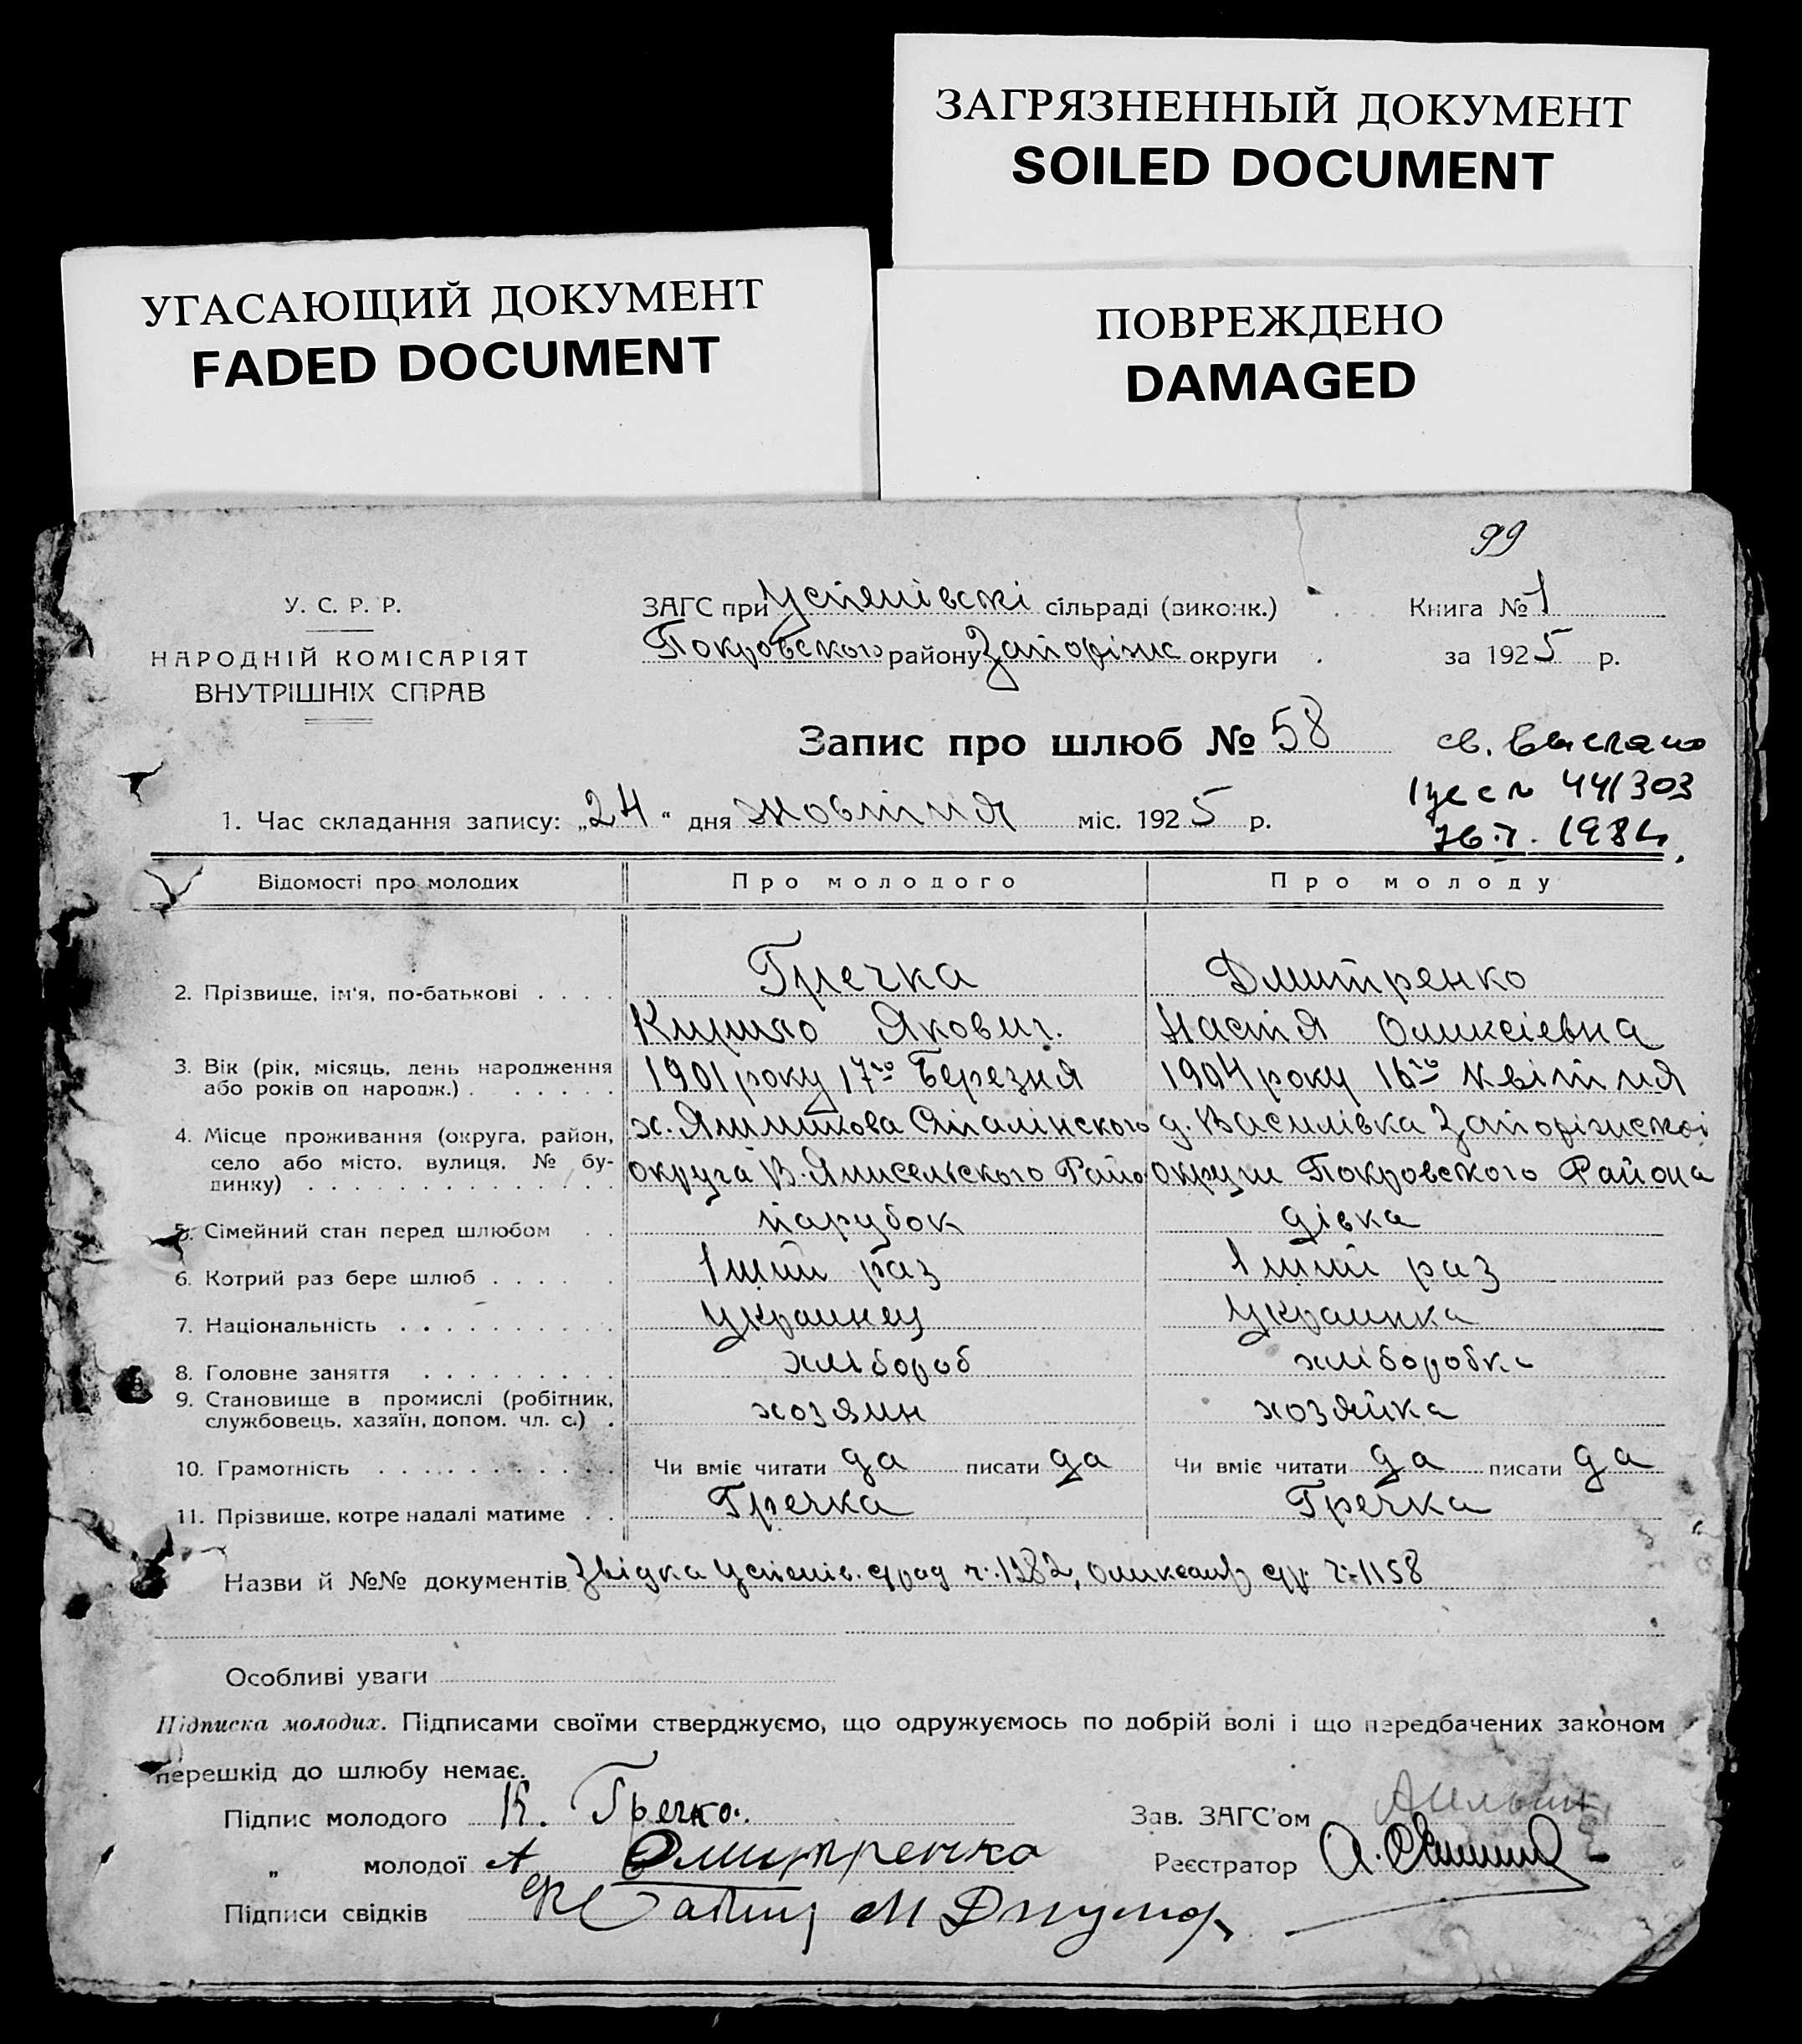 ЗАГРЯЗНЕННЫЙ ДОКУМЕНТ
SOILED DOCUMENT
УГАСАЮЩИЙ ДОКУМЕНТ
FADED DOCUMENT
ПОВРЕЖДЕНО
DAMAGED
99
У. С. Р. Р.
НАРОДНІЙ КОМІСАРІЯТ
ВНУТРІШНІХ СПРАВ
ЗАГС при Успенівскі сільраді (виконк.)
Покровського району Запоріжс округи
Книга № 1
за 1925 р.
Запис про шлюб № 58
св. выслано
44/303
1. Час складання запису: „24“ дня жовтня міс. 1925 р.
Відомості про молодих Про молодого Про молоду
2. Прізвище, ім'я, по-батькові . . . . Гречка Дмитренко
Кирило Якович. Настя Оликсіевна
3. Вік (рік, місяць, день народження або років од народж.) . . . . . . 1901 року 17го Березня 1904 року 16го Квітня
4. Місце проживання (округа, район, село або місто, вулиця, № будинку) . . . . . . . . . . . . . .
Сталінского д. Василівка Запоріжскої
округа Райо округи Покровского Района
5. Сімейний стан перед шлюбом . . парубок дівка
6. Котрий раз бере шлюб . . . . . 1ший раз 1ший раз
7. Національність . . . . . . . . . украинец украинка
8. Головне заняття . . . . . . . . хлібороб хліборобка
9. Становище в промислі (робітник, службовець, хазяїн, допом. чл. с.) . хозяин хозяйка
10. Грамотність . . . . . . . . . . Чи вміє читати да писати да Чи вміє читати да писати да
11. Прізвище, котре надалі матиме . . Гречка Гречка
Назви й №№ документів Звідка Успенів. ч. 1282, ч. 1158
Особливі уваги
Підписка молодих. Підписами своїми стверджуємо, що одружуємось по добрій волі і що передбачених законом
перешкід до шлюбу немає.
Підпис молодого К. Гречка.
Зав. ЗАГС'ом
„ молодої А Дмитренко
Реєстратор
Підписи свідків